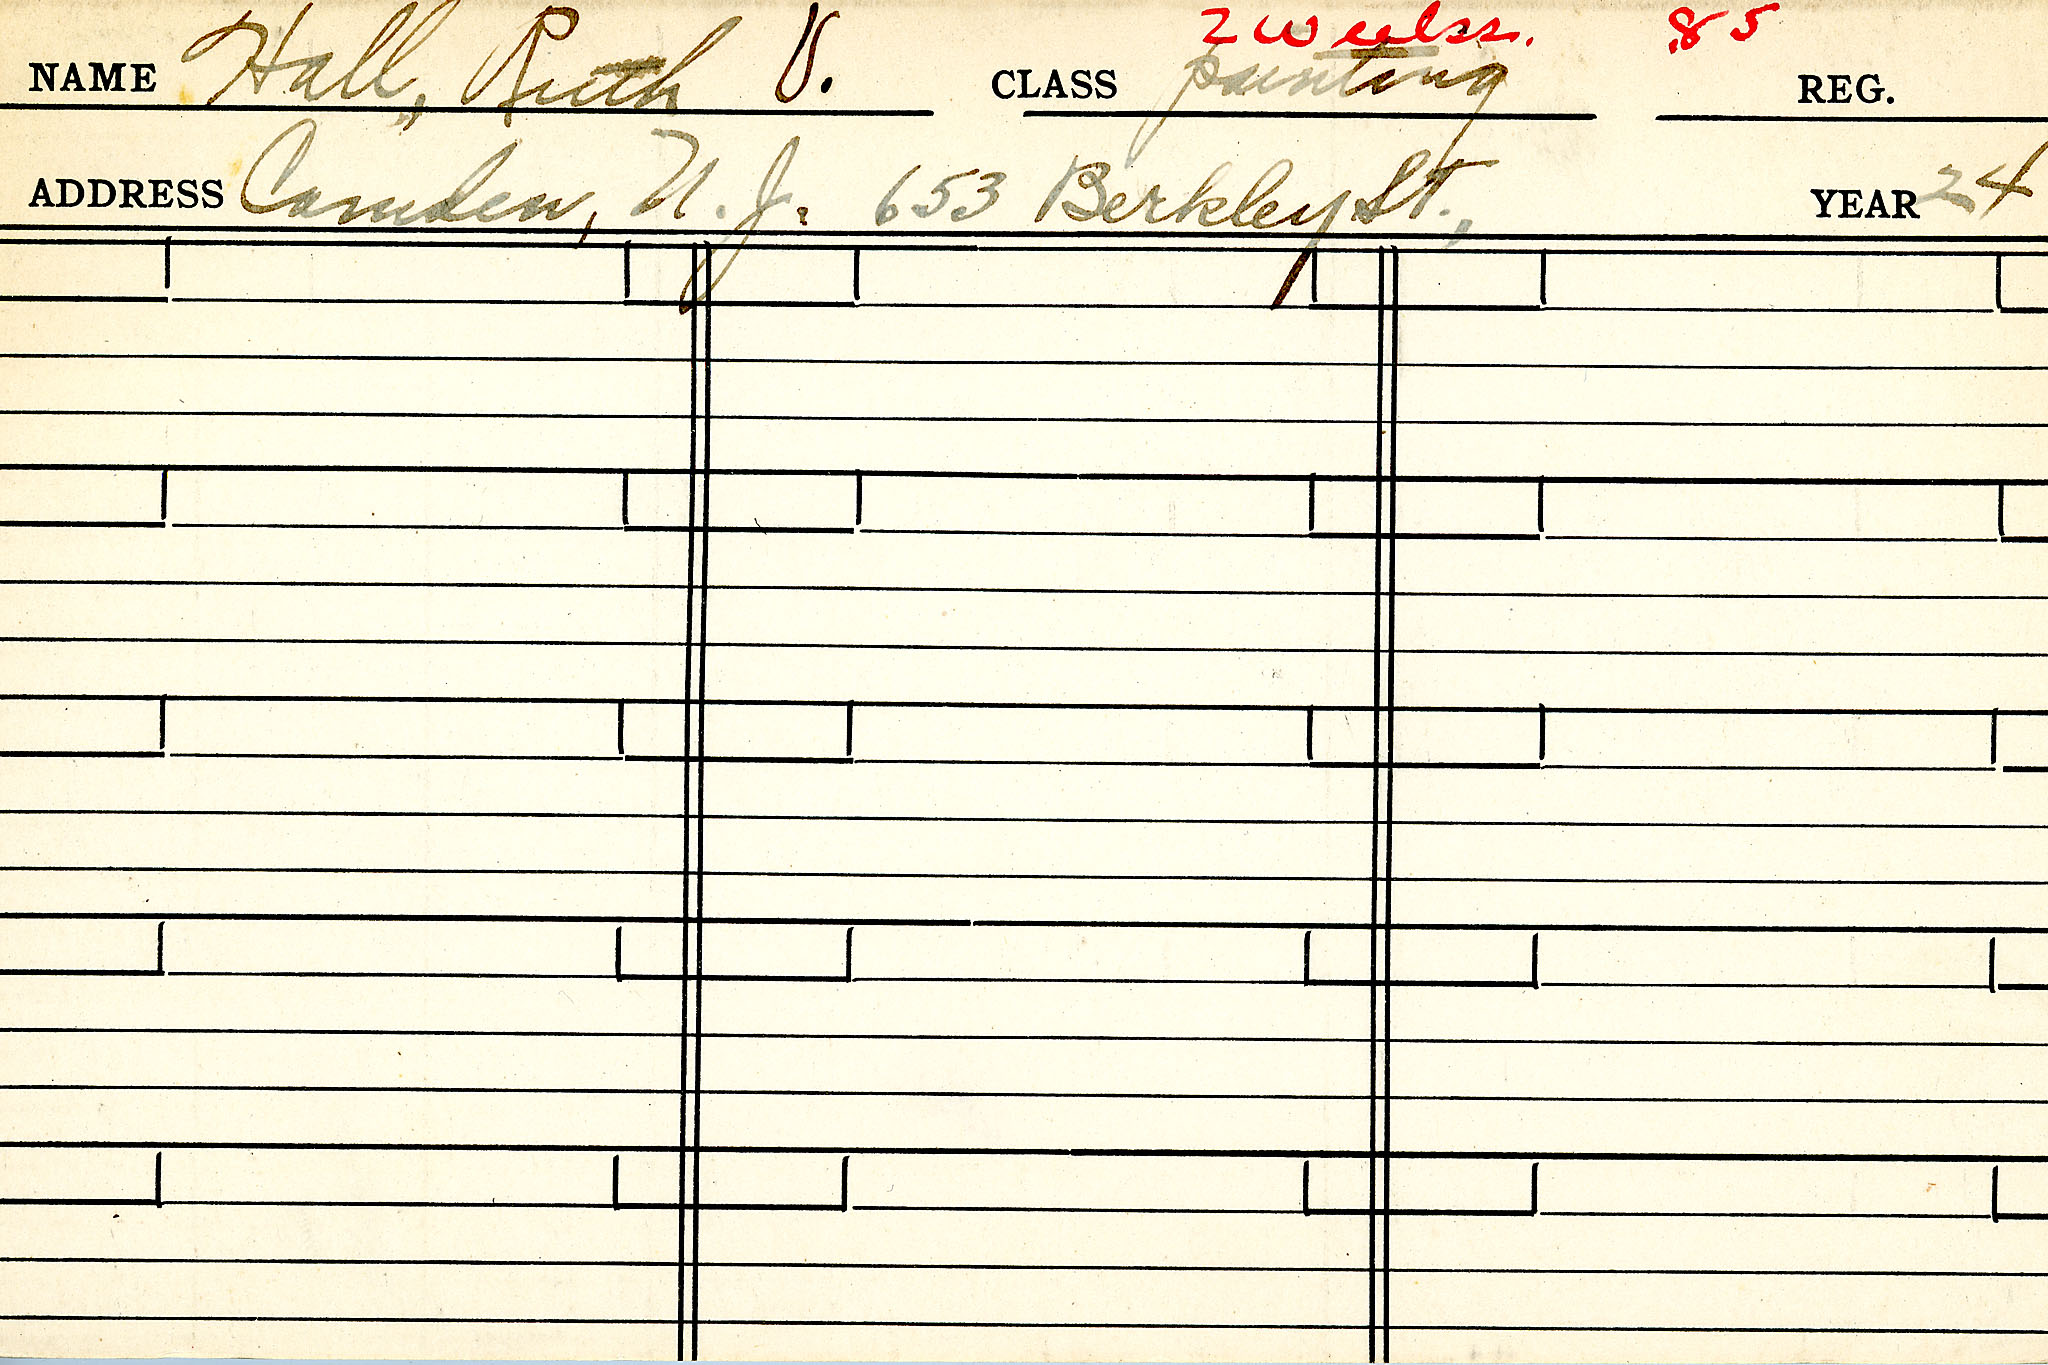 2 weeks. 85
NAME Hall, Ruth V. CLASS painting REG.
ADDRESS Camden, N.J. 653 Berkley St., YEAR 24